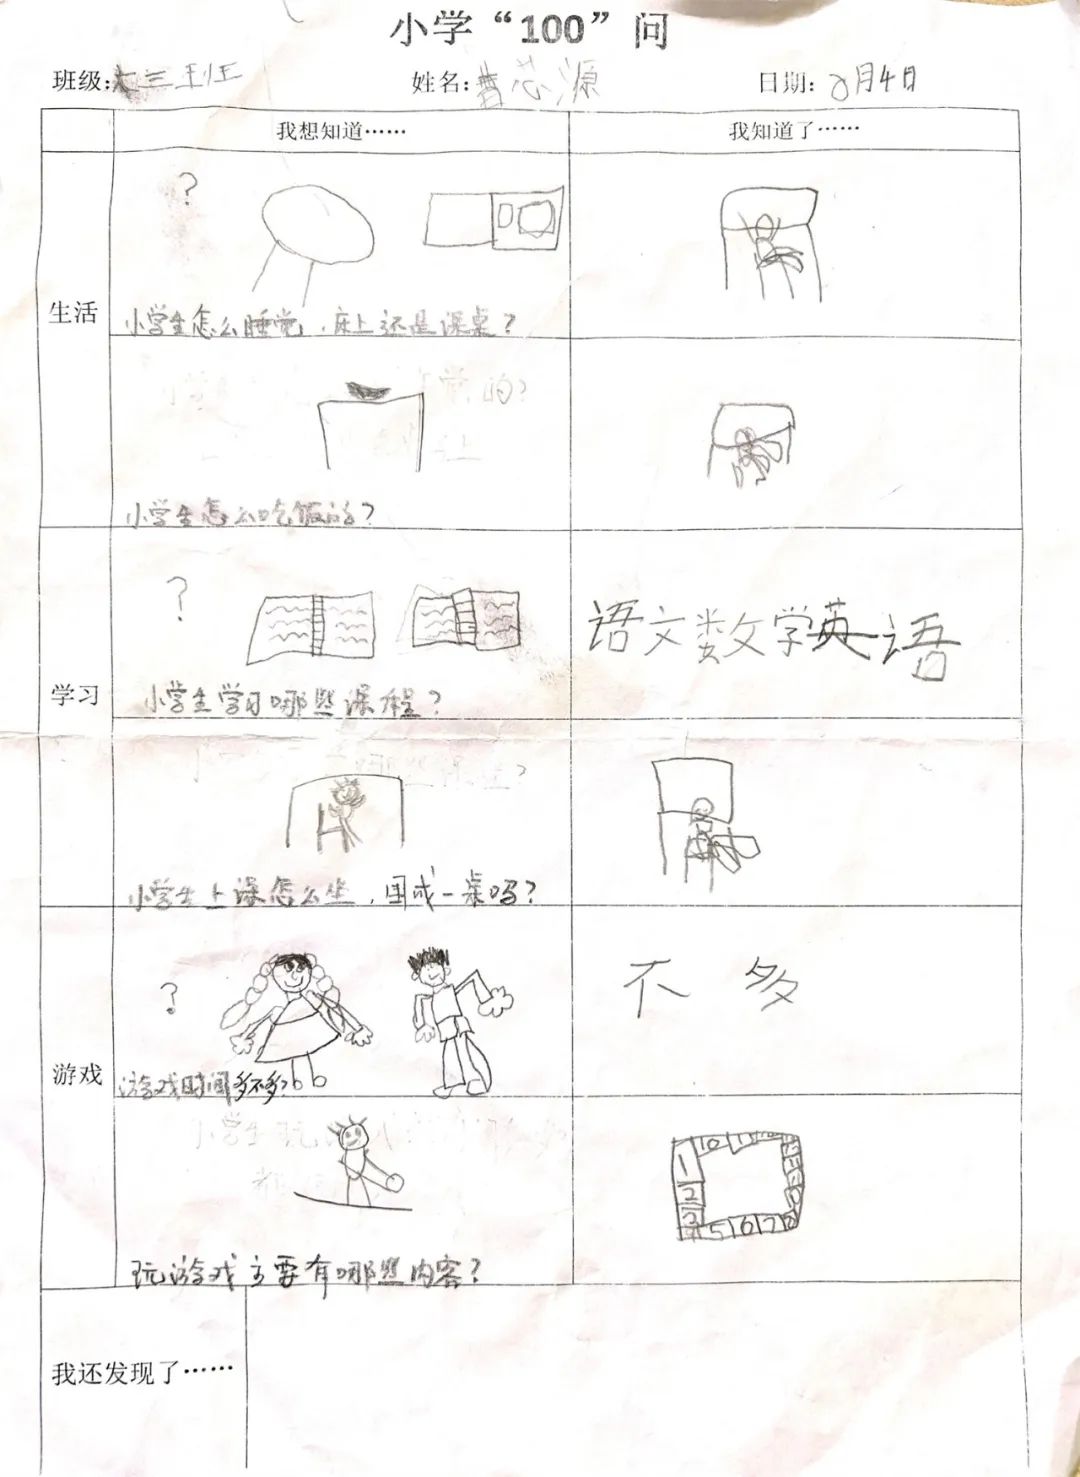 小学“100”问
班级:大三班 姓名:曹芯源 日期:6月4日
我想知道…… 我知道了……
生活
?
小学生怎么睡觉,床上还是课桌?
小学生怎么吃饭的?
学习
?
小学生学习哪些课程?
语文数学英语
小学生上课怎么坐,围成一桌吗?
游戏
?
游戏时间多不多?
不多
玩游戏主要有哪些内容?
1 2 3 4 5 6 7 8
10 11
我还发现了……